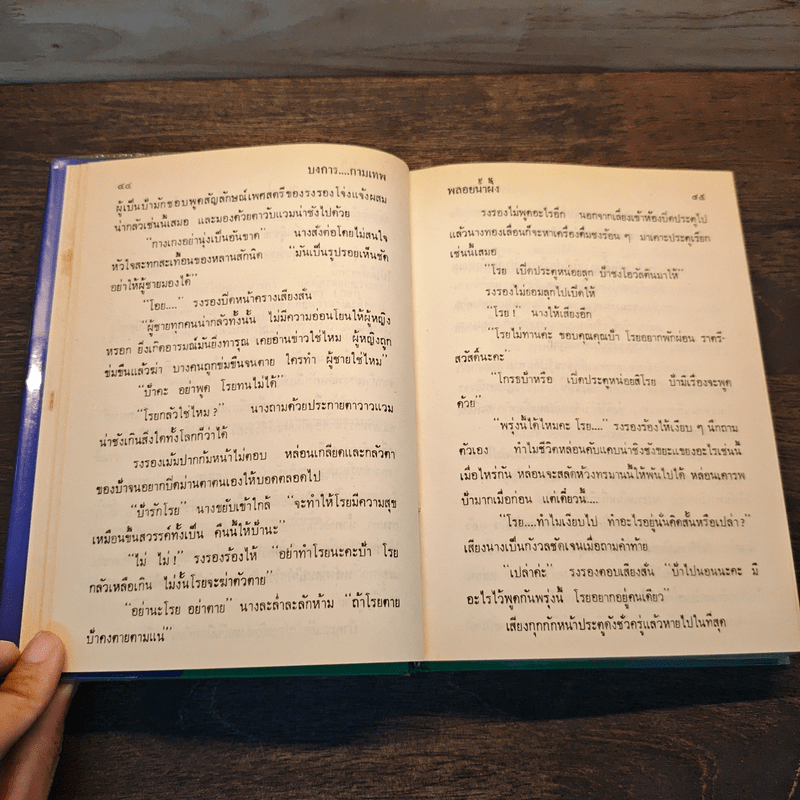 ๔๔
บงการ....กามเทพ
ผู้เป็นป้ามักชอบพูดสัญลักษณ์เพศสตรีของรงรองโจ่งแจ้งผสม
น่ากลัวเช่นนี้เสมอ และมองด้วยตาวับแวมน่าชังไปด้วย
“กางเกงอย่านุ่งเป็นอันขาด” นางสั่งต่อโดยไม่สนใจ
หัวใจสะทกสะเทือนของหลานสักนิด “มันเป็นรูปรอยเห็นชัด
อย่าให้ผู้ชายมองได้”
“โอย....” รงรองปิดหน้าครางเสียงสั่น
“ผู้ชายทุกคนน่ากลัวทั้งนั้น ไม่มีความอ่อนโยนให้ผู้หญิง
หรอก ยิ่งเกิดอารมณ์มันยิ่งทารุณ เคยอ่านข่าวใช่ไหม ผู้หญิงถูก
ข่มขืนแล้วฆ่า บางคนถูกข่มขืนจนตาย ใครทำ ผู้ชายใช่ไหม”
“ป้าคะ อย่าพูด โรยทนไม่ได้”
“โรยกลัวใช่ไหม?” นางถามด้วยประกายตาวาวแวม
น่าชังเกินสิ่งใดทั้งโลกก็ว่าได้
รงรองเม้มปากก้มหน้าไม่ตอบ หล่อนเกลียดและกลัวตา
ของป้าจนอยากปิดม่านตาตนเองให้บอดตลอดไป
“ป้ารักโรย” นางขยับเข้าใกล้ “จะทำให้โรยมีความสุข
เหมือนขึ้นสวรรค์ทั้งเป็น คืนนี้ให้ป้านะ”
“ไม่ ไม่!” รงรองร้องไห้ “อย่าทำโรยนะคะป้า โรย
กลัวเหลือเกิน ไม่งั้นโรยจะฆ่าตัวตาย”
“อย่านะโรย อย่าตาย” นางละล่ำละลักห้าม “ถ้าโรยตาย
ป้าคงตายตามแน่”
พลอยน้ำผึ้ง
๔๕
รงรองไม่พูดอะไรอีก นอกจากเลี่ยงเข้าห้องปิดประตูไป
แล้วนางทองเลื่อนก็จะหาเครื่องดื่มชงร้อน ๆ มาเคาะประตูเรียก
เช่นนี้เสมอ
“โรย เปิดประตูหน่อยลูก ป้าชงโอวัลตินมาให้”
รงรองไม่ยอมลุกไปเปิดให้
“โรย!” นางให้เสียงอีก
“โรยไม่ทานค่ะ ขอบคุณคุณป้า โรยอยากพักผ่อน ราตรี-
สวัสดิ์นะคะ”
“โกรธป้าหรือ เปิดประตูหน่อยสิโรย ป้ามีเรื่องจะพูด
ด้วย”
“พรุ่งนี้ได้ไหมคะ โรย....” รงรองร้องไห้เงียบ ๆ นึกถาม
ตัวเอง ทำไมชีวิตหล่อนคับแคบน่าชิงชังขยะแขยงอะไรเช่นนี้
เมื่อไหร่กัน หล่อนจะสลัดห้วงทรมานนี้ให้พ้นไปได้ หล่อนเคารพ
ป้ามากเมื่อก่อน แต่เดี๋ยวนี้....
“โรย....ทำไมเงียบไป ทำอะไรอยู่นั่นคิดสั้นหรือเปล่า?”
เสียงนางเป็นกังวลชัดเจนเมื่อถามคำท้าย
“เปล่าค่ะ” รงรองตอบเสียงสั่น “ป้าไปนอนนะคะ มี
อะไรไว้พูดกันพรุ่งนี้ โรยอยากอยู่คนเดียว”
เสียงกุกกักหน้าประตูดังชั่วครู่แล้วหายไปในที่สุด